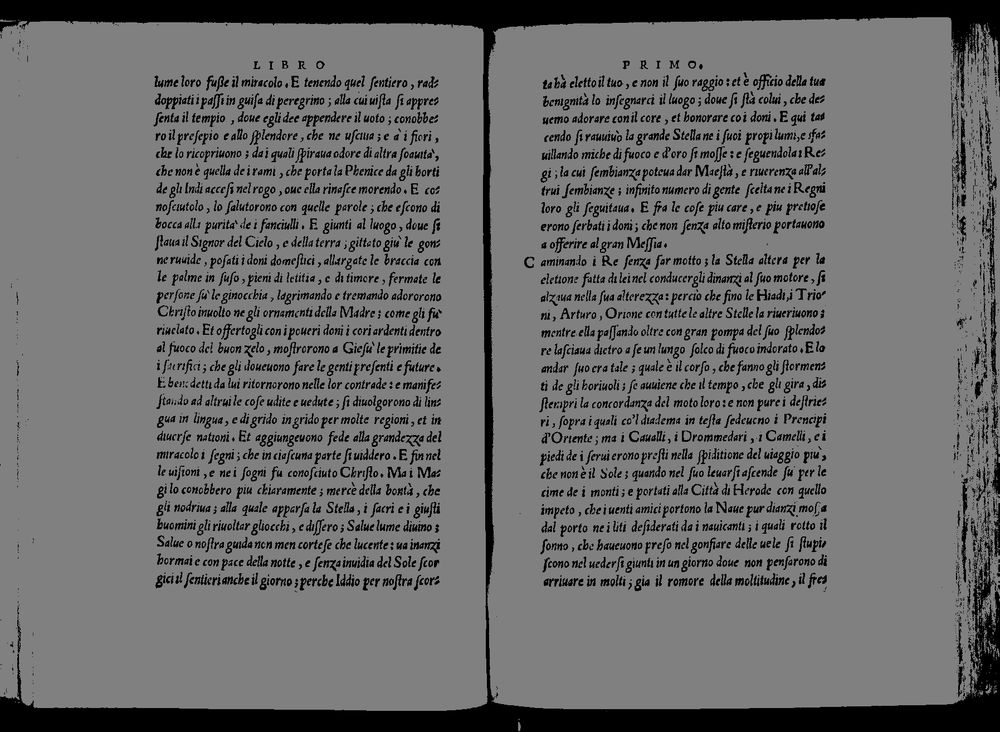 LIBRO
lume loro fuſſe il miracolo. E tenendo quel ſentiero, rad⸗
doppiati i paſſi in guiſa di peregrino; alla cui uiſta ſi appre⸗
ſenta il tempio, doue egli dee appendere il uoto; conobbe⸗
ro il preſepio e allo ſplendore, che ne uſciua; e à i fiori,
che lo ricopriuono; da i quali ſpiraua odore di altra ſoauità,
che non è quella de i rami, che porta la Phenice da gli horti
de gli Indi acceſi nel rogo, oue ella rinaſce morendo. E co⸗
noſciutolo, lo ſalutorono con quelle parole; che eſcono di
bocca alla purità de i fanciulli. E giunti al luogo, doue ſi
ſtaua il Signor del Cielo, e della terra; gittato giù le gon⸗
ne ruuide, poſati i doni domeſtici, allargate le braccia con
le palme in ſuſo, pieni di letitia, e di timore, fermate le
perſone sù le ginocchia, lagrimando e tremando adororono
Chriſto inuolto ne gli ornamenti della Madre; come gli fù
riuelato. Et offertogli con i poueri doni i cori ardenti dentro
al fuoco del buon zelo, moſtrorono a Gieſù le primitie de
i ſacrifici; che gli doueuono fare le genti preſenti e future.
E benedetti da lui ritornorono nelle lor contrade: e manife⸗
ſtando ad altrui le coſe udite e uedute; ſi diuolgorono di lin⸗
gua in lingua, e di grido in grido per molte regioni, et in
diuerſe nationi. Et aggiungeuono fede alla grandezza del
miracolo i ſegni; che in ciaſcuna parte ſi uiddero. E fin nel
le uiſioni, e ne i ſogni fu conoſciuto Chriſto. Ma i Ma⸗
gi lo conobbero piu chiaramente; mercè della bontà, che
gli nodriua; alla quale apparſa la Stella, i ſacri e i giuſti
huomini gli riuoltar gliocchi, e diſſero; Salue lume diuino;
Salue o noſtra guida non men corteſe che lucente: ua inanzi
hormai e con pace della notte, e ſenza inuidia del Sole ſcor
gici il ſentieri anche il giorno; perche Iddio per noſtra ſcor⸗
PRIMO.
ta hà eletto il tuo, e non il ſuo raggio: et è officio della tua
benignità lo inſegnarci il luogo; doue ſi ſtà colui, che de⸗
uemo adorare con il core, et honorare co i doni. E qui ta⸗
cendo ſi rauuiuò la grande Stella ne i ſuoi propi lumi, e sfa⸗
uillando miche di fuoco e d'oro ſi moſſe: e ſeguendola i Re⸗
gi; la cui ſembianza poteua dar Maeſtà, e riuerenza all'al⸗
trui ſembianze; infinito numero di gente ſcelta ne i Regni
loro gli ſeguitaua. E fra le coſe piu care, e piu pretioſe
erono ſerbati i doni; che non ſenza alto miſterio portauono
a offerire al gran Meſſia.
Caminando i Re ſenza far motto; la Stella altera per la
elettione fatta di lei nel conducergli dinanzi al ſuo motore, ſi
alzaua nella ſua alterezza: percio che fino le Hiadi, i Trio⸗
ni, Arturo, Orione con tutte le altre Stelle la riueriuono;
mentre ella paſſando oltre con gran pompa del ſuo ſplendo⸗
re laſciaua dietro a ſe un lungo ſolco di fuoco indorato. E lo
andar ſuo era tale; quale è il corſo, che fanno gli ſtormen⸗
ti de gli horiuoli; ſe auuiene che il tempo, che gli gira, di⸗
ſtempri la concordanza del moto loro: e non pure i deſtrie⸗
ri, ſopra i quali co'l diadema in teſta ſedeuono i Prencipi
d'Oriente; ma i Caualli, i Drommedari, i Camelli, e i
piedi de i ſerui erono preſti nella ſpiditione del uiaggio piu,
che non è il Sole; quando nel ſuo leuarſi aſcende sù per le
cime de i monti; e portati alla Città di Herode con quello
impeto, che i uenti amici portono la Naue pur dianzi moſſa
dal porto ne i liti deſiderati da i nauicanti; i quali rotto il
ſonno, che haueuono preſo nel gonfiare delle uele ſi ſtupi⸗
ſcono nel uederſi giunti in un giorno doue non penſarono di
arriuare in molti; gia il romore della moltitudine, il fre⸗